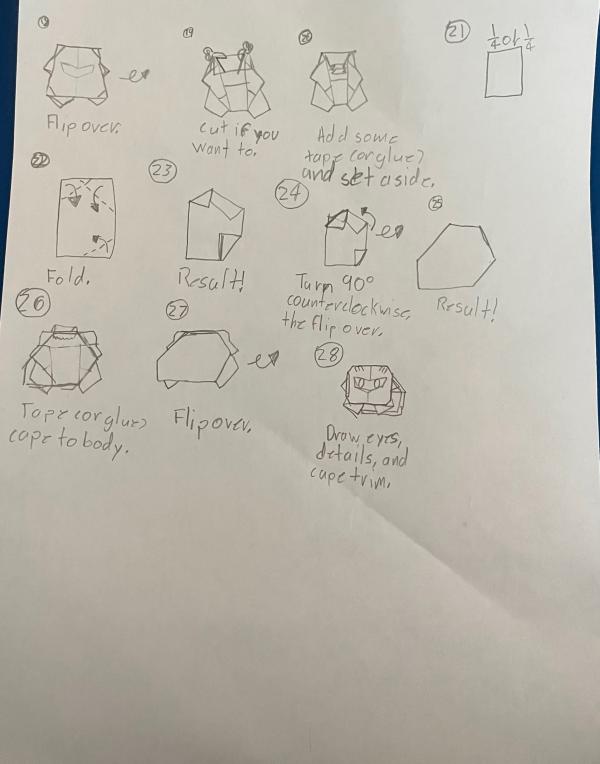 18
Flip over.
19
cut if you
want to.
20
Add some
tape (or glue)
and set aside.
21
1/4 of 1/4
22
Fold.
23
Result!
24
Turn 90°
counterclockwise,
the flip over.
25
Result!
26
Tape (or glue)
cape to body.
27
Flip over.
28
Draw eyes,
details, and
cape trim.